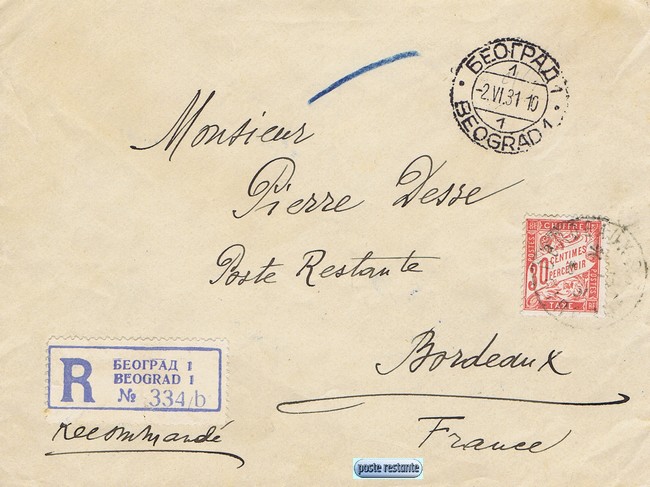 БЕОГРАД 1
1
-2.VI.31-10
1
BEOGRAD 1
Monsieur
Pierre Desse
Poste Restante
CHIFFRE
POSTES
30 CENTIMES
A PERCEVOIR
POSTES
TAXE
RF
Bordeaux
France
R
БЕОГРАД 1
BEOGRAD 1
№ 334/b
Recommandé
poste restante